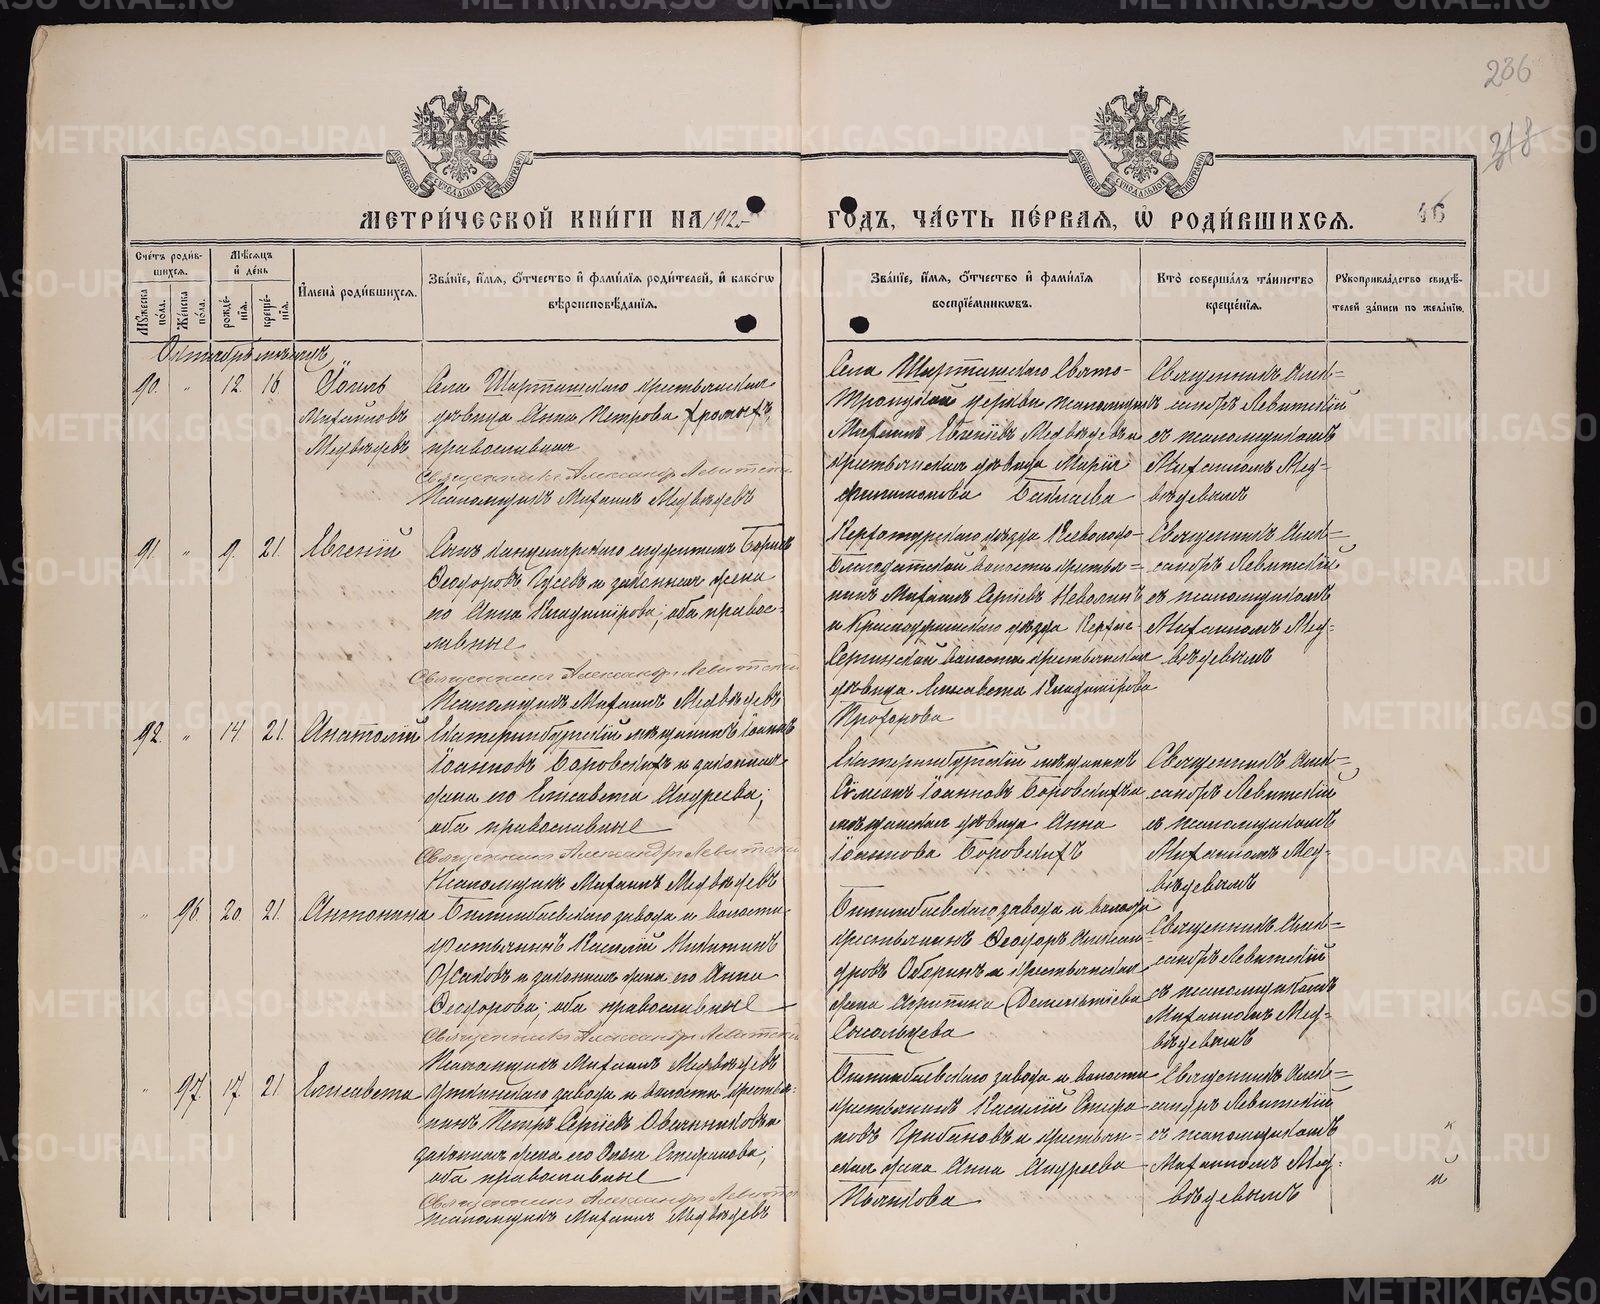 236
318
МЕТРИ́ЧЕСКОЙ КНИ́ГИ НА 1912 ГО́ДЪ, ЧА́СТЬ ПЕ́РВАЯ, Ѡ РОДИ́ВШИХСЯ.
46
Сче́тъ роди́в-
шихся.
Мѣ́сяцъ
и́ де́нь
Му́жеска по́ла.
Же́нска по́ла.
рожде́-
нїя.
креще́-
нїя.
И҆мена̀ роди́вшихся.
Зва́нїе, и҆́мя, ѻ҆́тчество и҆ фами́лїя роди́телей, и҆ како́гѡ
вѣроисповѣ́данїя.
Зва́нїе, и҆́мя, ѻ҆́тчество и҆ фами́лїя
воспрїе́мникѡвъ.
Кто̀ соверша́лъ та́инство
креще́нїя.
Рукоприкла́дство свидѣ́-
телей за́писи по жела́нїю.
Октябрь мѣсяцъ
90. " 12. 16.
Михайловъ
Медвѣдевъ
Села Шарташскаго крестьянская
дѣвица Анна Петрова
православная
Священникъ Александр Левитскі
Псаломщикъ Михаилъ Медвѣдевъ
Села Шарташскаго Свято-
Троицкой церкви псаломщикъ
Михаилъ Медвѣдевъ и
крестьянская дѣвица Марія
Филимонова
Священникъ Алек=
сандръ Левитскій
съ псаломщикомъ
Михаиломъ Мед-
вѣдевымъ
91. " 9. 21. Евгеній
Сынъ канцелярскаго служителя Борисъ
Ѳеодоровъ Гусевъ и законная жена
его Анна Владимірова; оба правос-
лавные
Священникъ Александр Левитскі
Псаломщикъ Михаилъ Медвѣдевъ
Верхотурскаго уѣзда Всеволодо-
Благодатской волости крестья=
нинъ Михаилъ Сергіевъ Неволинъ
и Красноуфимскаго уѣзда Верхне-
Сергинской волости крестьянская
дѣвица Елисавета Владимірова
Прохорова
Священникъ Алек=
сандръ Левитскій
съ псаломщикомъ
Михаиломъ Мед-
вѣдевымъ
92. " 14 21. Анатолій
Екатеринбургскій мѣщанинъ Іоаннъ
Іоанновъ Боровскихъ и законная
жена его Елисавета Андреева;
оба православные
Священникъ Александр Левитскі
Псаломщикъ Михаилъ Медвѣдевъ
Екатеринбургскій мѣщанинъ
Сѵмеонъ Іоанновъ Боровскихъ и
мѣщанская дѣвица Анна
Іоаннова Боровскихъ
Священникъ Алек=
сандръ Левитскій
съ псаломщикомъ
Михаиломъ Мед-
вѣдевымъ
" 96 20. 21. Антонина
Билимбаевскаго завода и волости
крестьянинъ Василій Никитинъ
и законная жена его Анна
Ѳеодорова; оба православные
Священникъ Александр Левитскі
Псаломщикъ Михаилъ Медвѣдевъ
Билимбаевскаго завода и волости
крестьянинъ Ѳеодоръ Алексан-
дровъ Оборинъ и крестьянская
жена Агрипина Дементіева
Сосальцева
Священникъ Алек=
сандръ Левитскій
съ псаломщикомъ
Михаиломъ Мед-
вѣдевымъ
" 97. 17. 21 Елисавета
Уткинскаго завода и волости крестья-
нинъ Петръ Сергіевъ Овчинниковъ и
законная жена его Ольга Спиридонова;
оба православные
Священникъ Александр Левитск
Псаломщикъ Михаилъ Медвѣдевъ
Билимбаевскаго завода и волости
крестьянинъ Василій Спиридо-
новъ Грибановъ и крестьян=
ская жена Анна Андреева
Полякова
Священникъ Алек=
сандръ Левитскій
съ псаломщикомъ
Михаиломъ Мед-
вѣдевымъ
METRIKI.GASO-URAL.RU